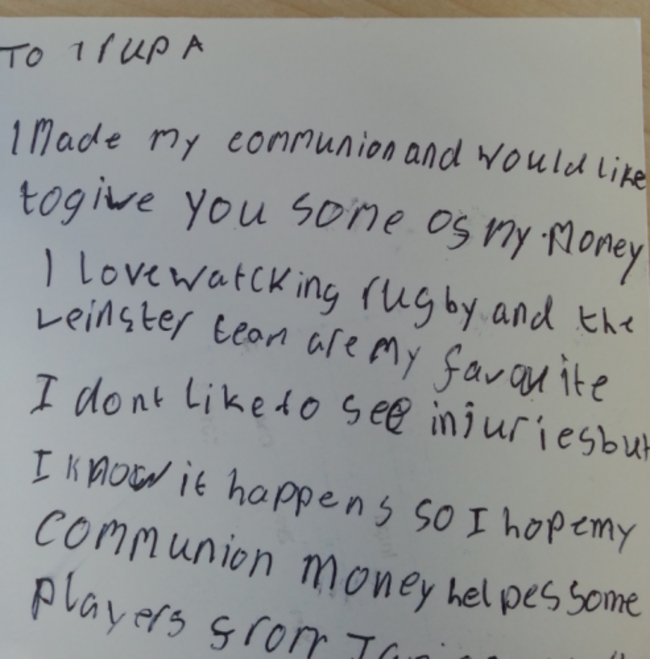 To IRUPA
I Made my communion and would like
to give you some os my money
I love watcking rugby and the
Leinster team are my favouite
I dont like to see injuries but
I know it happens so I hope my
Communion money helpes some
players srom